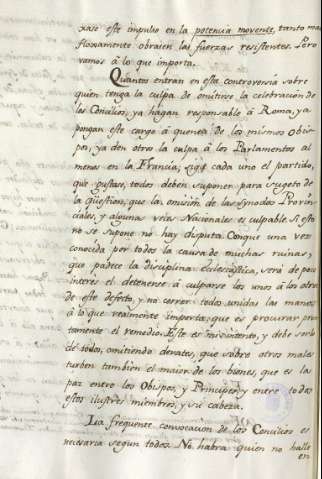 xase este impulso en la potencia movente, tanto mas
floxamente obraien las fuerzas resistentes. Pero
vamos à lo que importa.
Quantos entran en esta controversia sobre
quien tenga la culpa de omitirse la celebración de
los Concilios, ya hagan responsable à Roma, ya
pongan este cargo à quenta de los mismos Obis-
pos, ya den otros la culpa à los Parlamentos al
menos en la Francia, siga cada uno el partido,
que gustase, todos deben suponer para sugeto de
la question, que la omision de los Synodos Provin-
ciales, y algunas veces Nacionales es culpable si esto
no se supone no hay disputa. Conque una vez
conocida por todos la causa de muchas ruinas,
que padece la disciplina Ecclesiastica, será de poco
interes el detenerse à culparse los unos à los otros
de este defecto, y no correr todos unidas las manos
à lo que realmente importa; que es procurar pron-
tamente el remedio. Este es mi intento, y debe serlo
de todos, omitiendo devates, que sobre otros males
turben tambien el maior de los bienes, que es la
paz entre los Obispos, y Principes, y entre todos
estos ilustres miembros, y su cabeza.
La frequente convocacion de los Concilios es
necesaria segun todos. No habra quien no halle
en